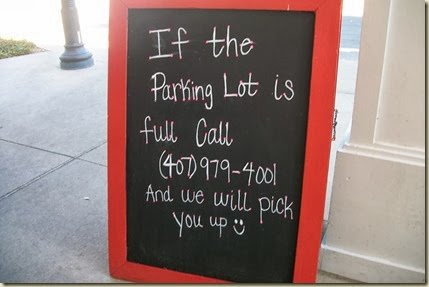 If the
Parking Lot is
full Call
(407)979-4001
And we will pick
you up